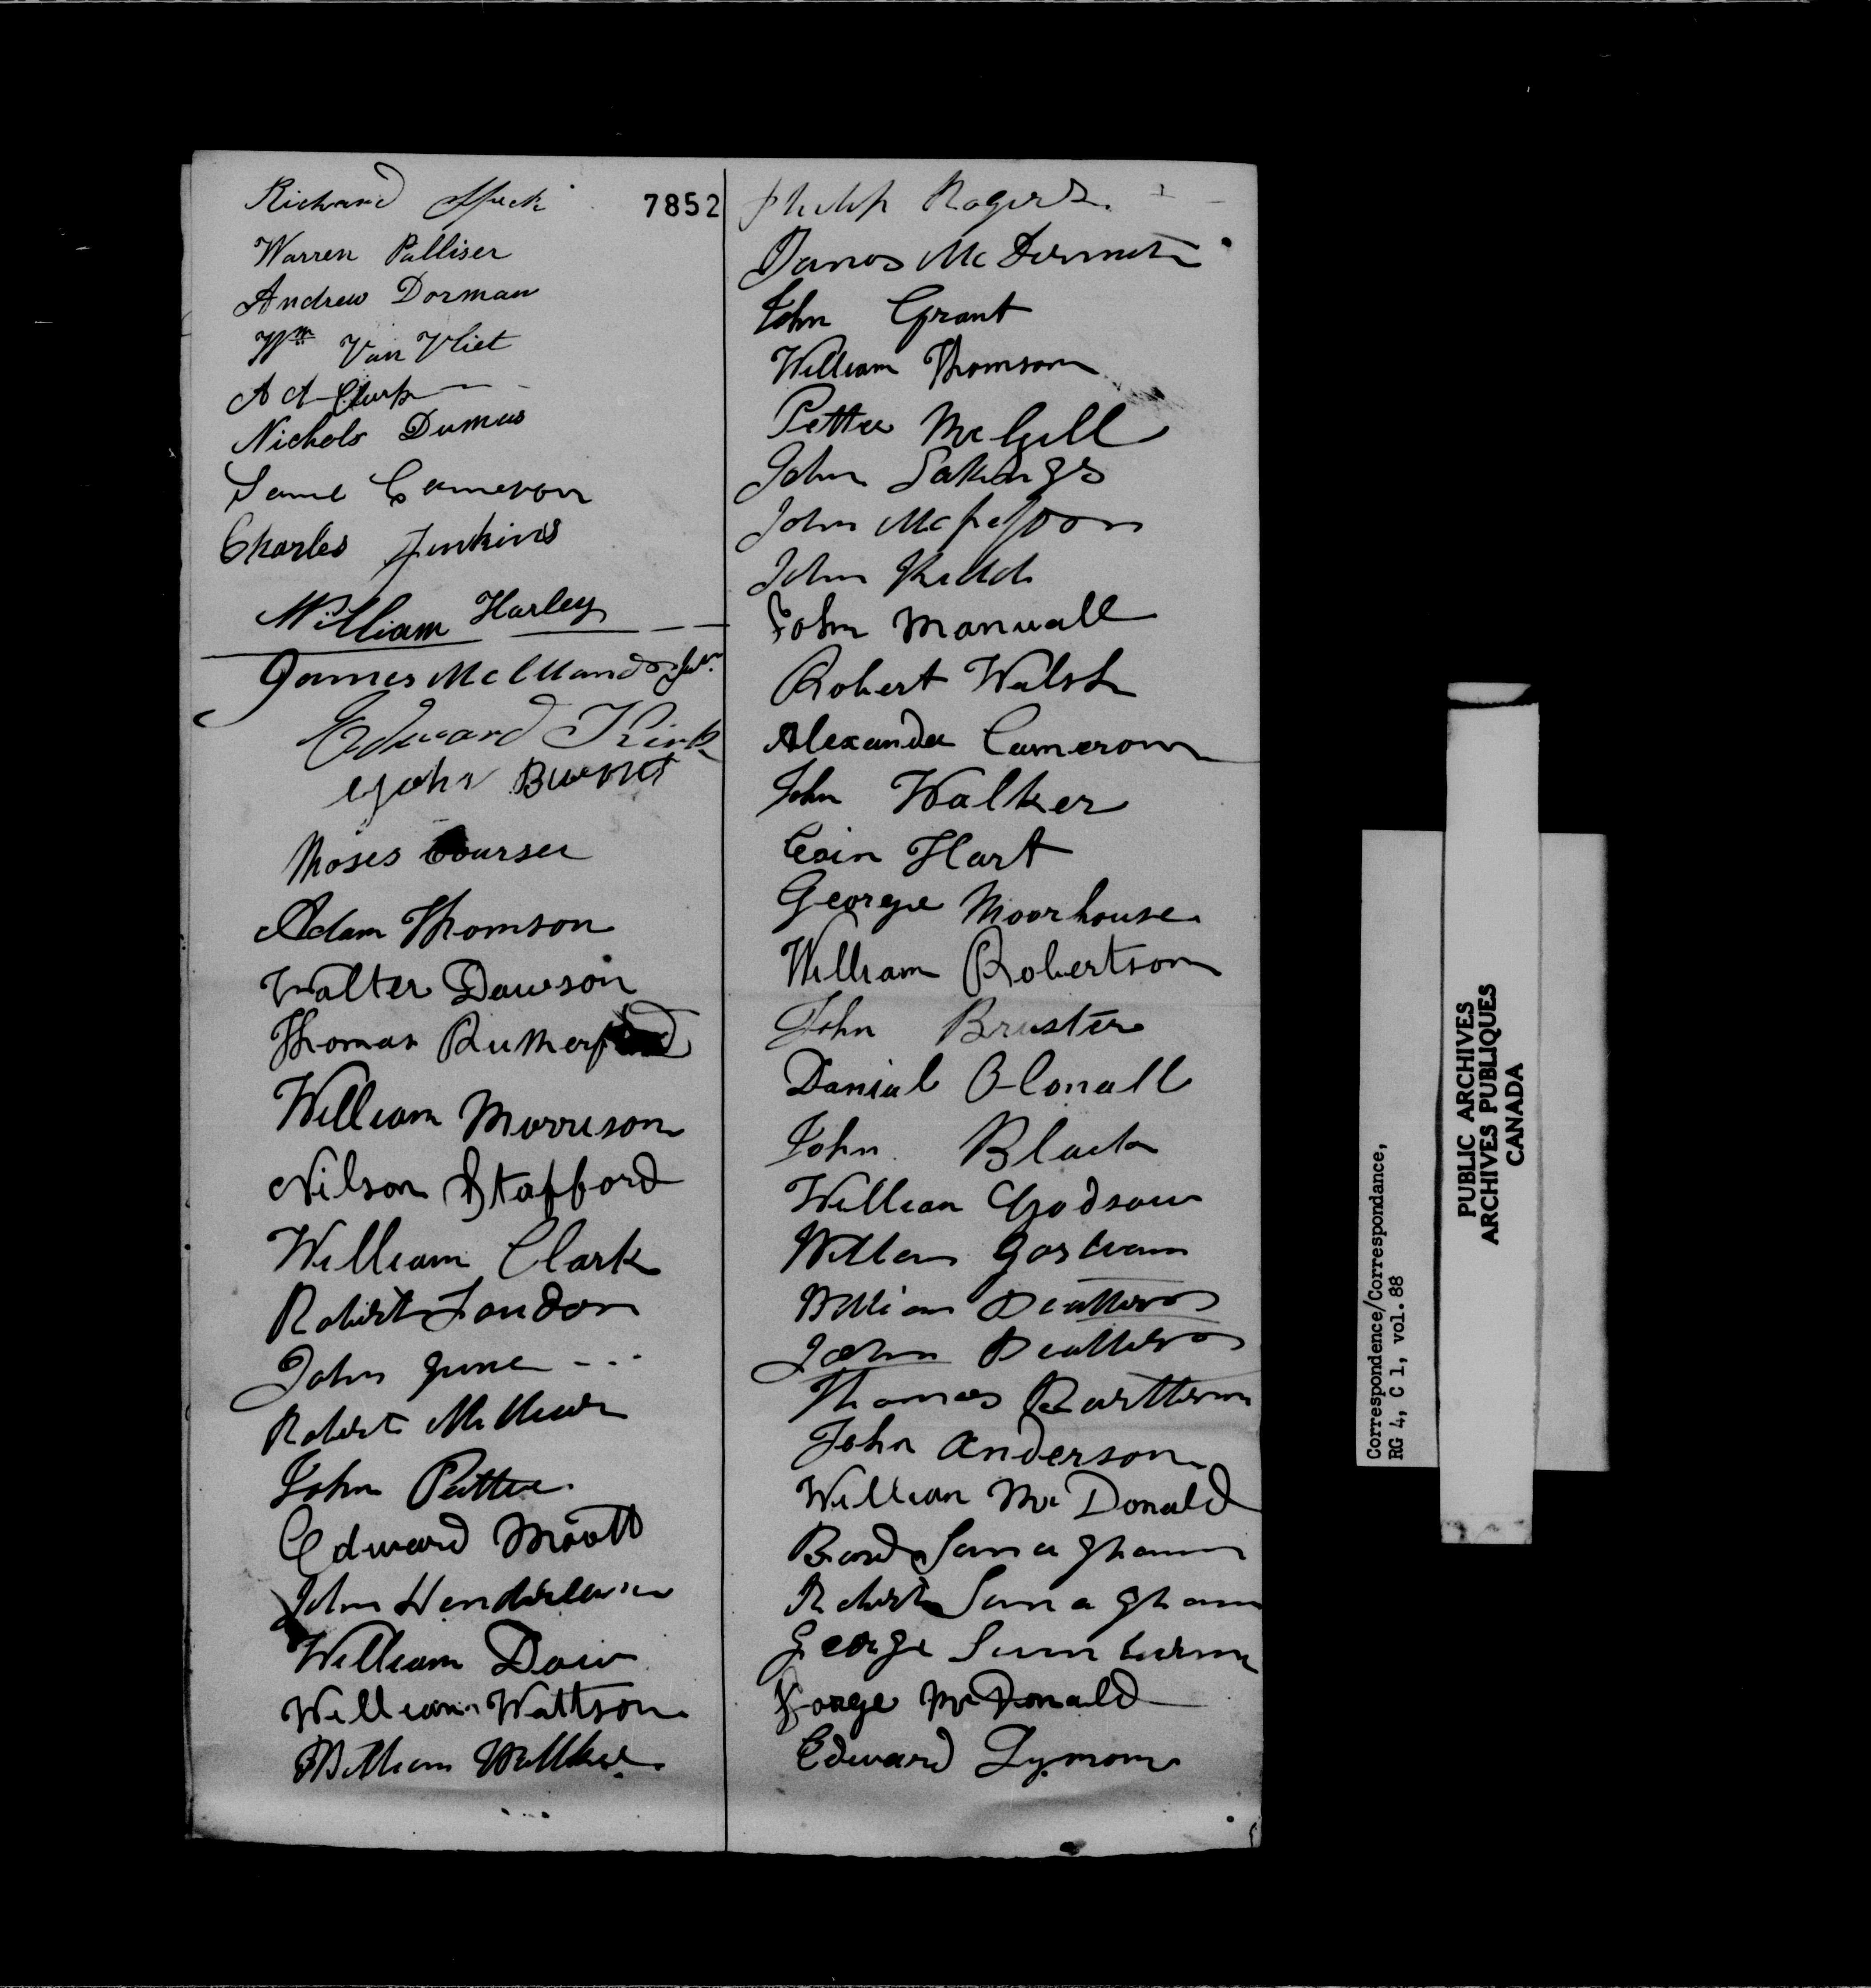 7852
Richard Speck
Warren Palliser
Andrew Dorman
Wm Van Vliet
A A Clark
Nichols Dumas
Saml Cameron
Charles Jenkins
William Harley
James McMand Junr
Edward Kirk
John Burns
Moses Courser
Adam Thomson
Walter Dawson
Thomas Rutherford
William Morrison
Nilson Stafford
William Clark
Robert Loudon
John June
Robert
John Pettee
Edward Moott
John Henderson
William Daw
William Wattson
William Walker
Philip Rogers
James McDermott
John Grant
William Thomson
Petter McGill
John Sakings
John
John Kidd
John Manuall
Robert Walsh
Alexander Cameron
John Walker
Coin Hart
George Moorhouse
William Robertson
John Bruster
Danial O Conall
John Black
William Godsow
William
William
John
Thomas
John Anderson
William McDonald
Sanagham
Robert Sanagham
George
Gorge McDonald
Edward Lymom
Correspondence/Correspondance,
RG 4, C 1, vol. 88
PUBLIC ARCHIVES
ARCHIVES PUBLIQUES
CANADA